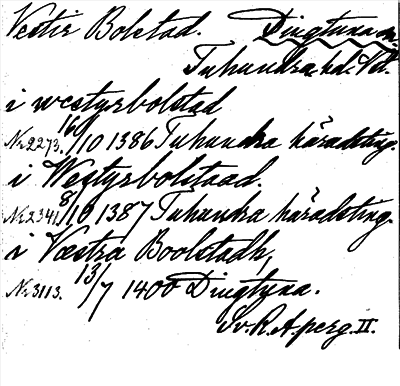 Vestir Bolstad. Dingtuna sn.
Tuhundra hd. Vstl.
i westyrbolstad
Nr 2273. 16/10 1386 Tuhundra häradsting.
i Westyrbolstaad.
Nr 2341. 8/10 1387 Tuhundra häradsting.
i Væstra Boolstadh,
Nr 3113. 13/7 1400 Dingtuna.
Sv. R. A. perg. II.